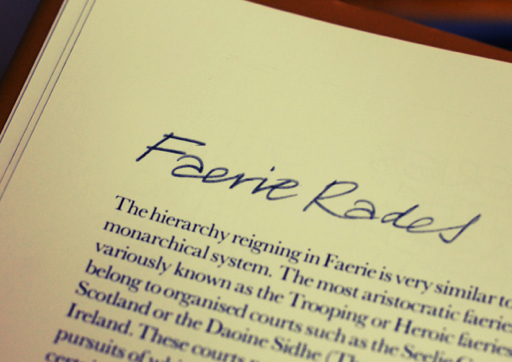 Faerie Rades
The hierarchy reigning in Faerie is very similar to
monarchical system. The most aristocratic faeries
variously known as the Trooping or Heroic faeries
belong to organised courts such as the Seelie
Scotland or the Daoine Sidhe (The
Ireland. These courts
pursuits of